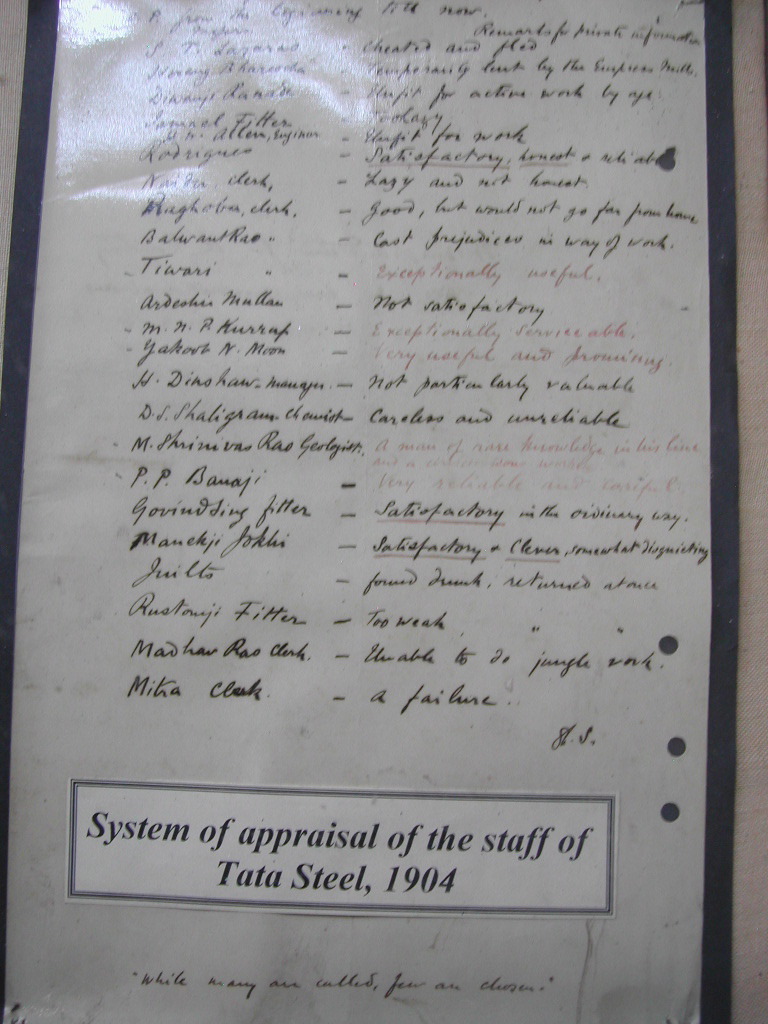 P. from the beginning till now.
Remarks for private information
S. T. Lazarus - Cheated and fled
Temporarily lent by the Empress Mills.
Ranade - Unfit for active work by age
Samuel Fitter - Too lazy
Allen, Engineer - Unfit for work
Rodrigues - Satisfactory, honest & reliable
clerk, - Lazy and not honest
Raghoba, clerk, - Good, but would not go far from home
Balwant Rao " - Cast prejudices in way of work.
Tiwari " - Exceptionally useful.
Ardeshir Mullan - Not satisfactory
M. N. P. Kurrap - Exceptionally serviceable.
Yakoob N. Moon - Very useful and promising.
H. Dinshaw - manager - Not particularly valuable
D. S. Shaligram - Chemist - Careless and unreliable
M. Shrinivas Rao Geologist, A man of rare knowledge in his line
and a
P. P. Banaji - Very reliable and careful
Govindsing fitter - Satisfactory in the ordinary way.
Manekji Jokhi - Satisfactory & Clever, somewhat disquieting
- found drunk, returned at once
Rustomji Fitter - Too weak " "
Madhav Rao Clerk. - Unable to do jungle work.
Mitra Clerk. - A failure.
System of appraisal of the staff of
Tata Steel, 1904
"While many are called, few are chosen."